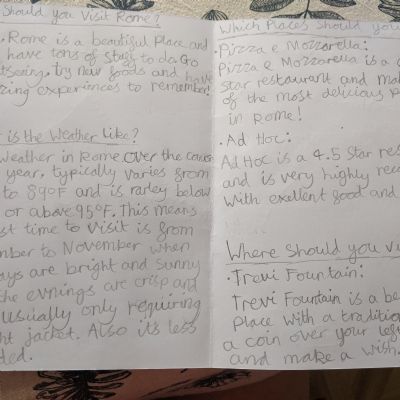 Should you Visit Rome?
· Rome is a beautiful place and
have tons of stuff to do. Go
try new foods and have
experiences to remember!
is the Weather Like?
weather in Rome over the
year, typically varies from
to 89°F and is rarley below
or above 95°F. This means
time to visit is from
to November when
are bright and sunny
evnings are crisp and
usually only requiring
jacket. Also its less
Which Places Should you
· Pizza e Mozzarella:
Pizza e Mozzarella is a
star restaurant and
of the most delicious
in Rome!
· Ad Hoc:
Ad Hoc is a 4.5 Star
and is very highly
with exellent good and
Where Should you
· Trevi Fountain:
Trevi Fountain is a
Place with a
a coin over your
and make a wish.